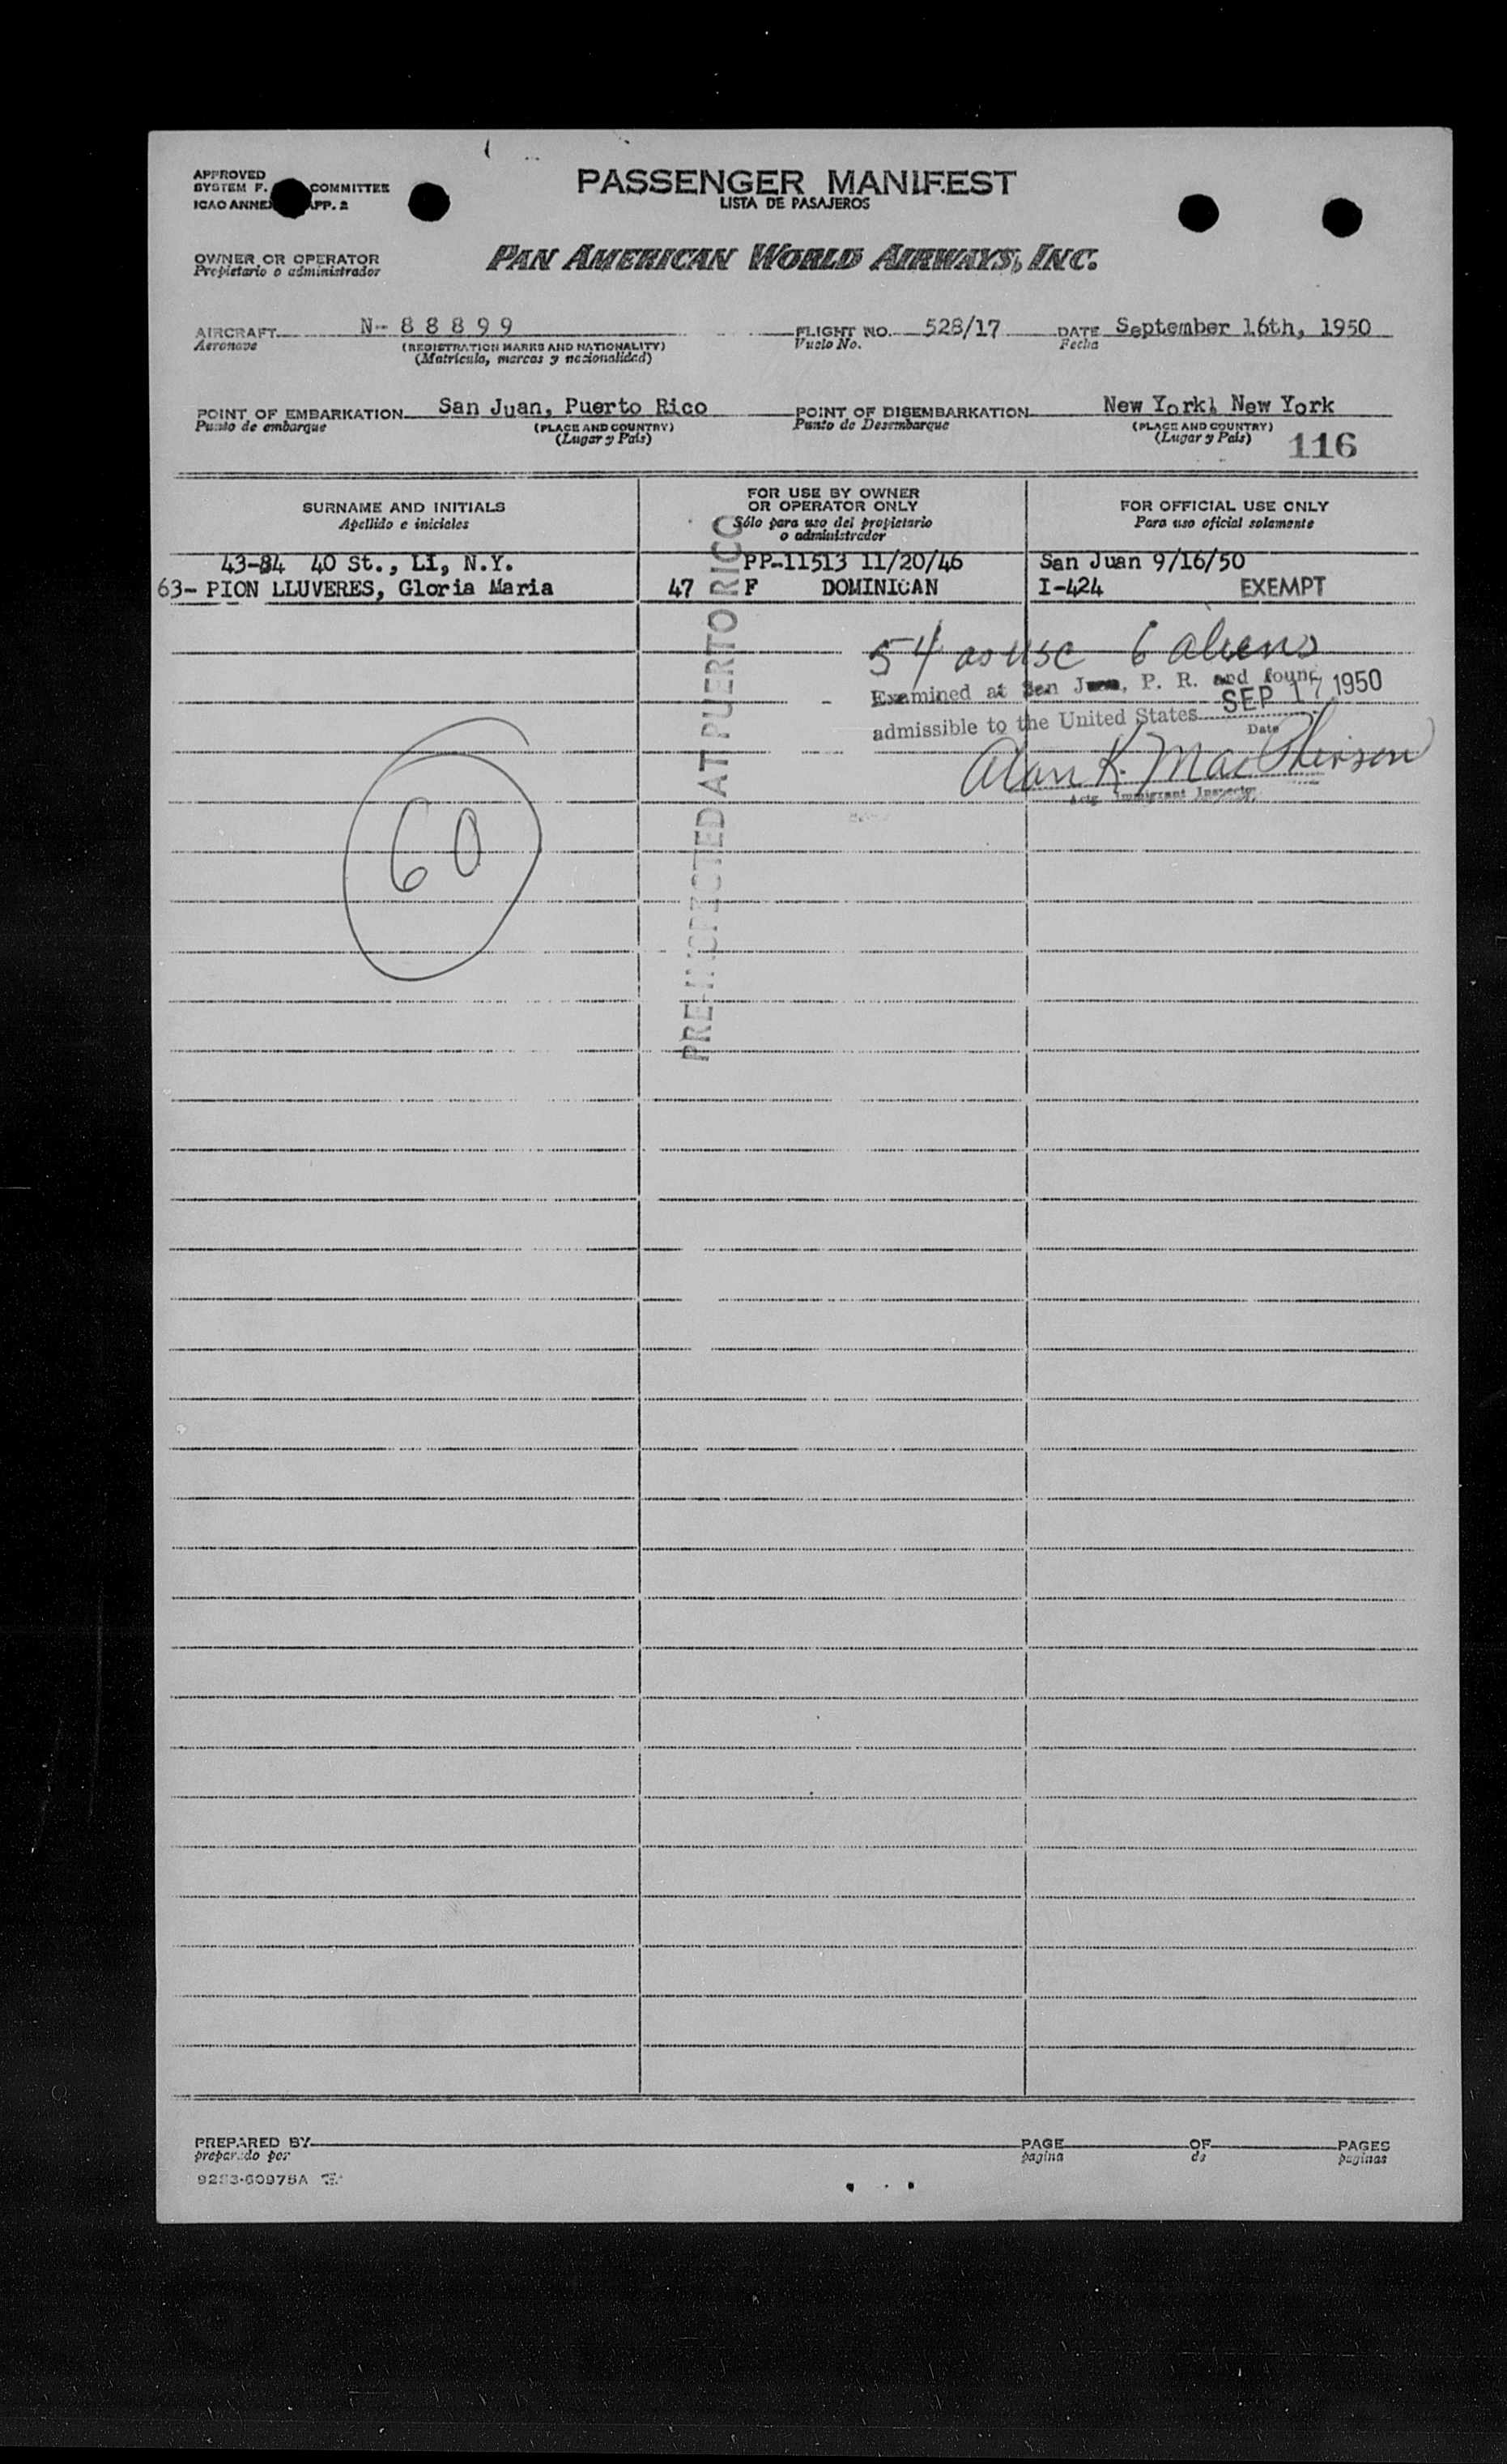 APPROVED
SYSTEM F. COMMITTEE
ICAO ANNEX APP. 2
PASSENGER MANIFEST
LISTA DE PASAJEROS
OWNER OR OPERATOR
Propietario o administrador
PAN AMERICAN WORLD AIRWAYS, INC.
AIRCRAFT N- 8 8 8 9 9 FLIGHT NO. 528/17 DATE September 16th, 1950
Aeronave (REGISTRATION MARKS AND NATIONALITY) Vuelo No. Fecha
(Matrícula, marcas y nacionalidad)
POINT OF EMBARKATION San Juan, Puerto Rico POINT OF DISEMBARKATION New York, New York
Punto de embarque (PLACE AND COUNTRY) Punto de Desembarque (PLACE AND COUNTRY)
(Lugar y País) (Lugar y País) 116
SURNAME AND INITIALS FOR USE BY OWNER OR OPERATOR ONLY FOR OFFICIAL USE ONLY
Apellido e iniciales Sólo para uso del propietario o administrador Para uso oficial solamente
43-84 40 St., LI, N.Y. PP-11513 11/20/46 San Juan 9/16/50
63- PION LLUVERES, Gloria Maria 47 F DOMINICAN I-424 EXEMPT
54 as USC 6 aliens
Examined at San Juan, P. R. and found
admissible to the United States SEP 17 1950
Date
Alan K. MacPherson
Actg. Immigrant Inspector
60
PRE-INSPECTED AT PUERTO RICO
PREPARED BY PAGE OF PAGES
preparado por pagina de paginas